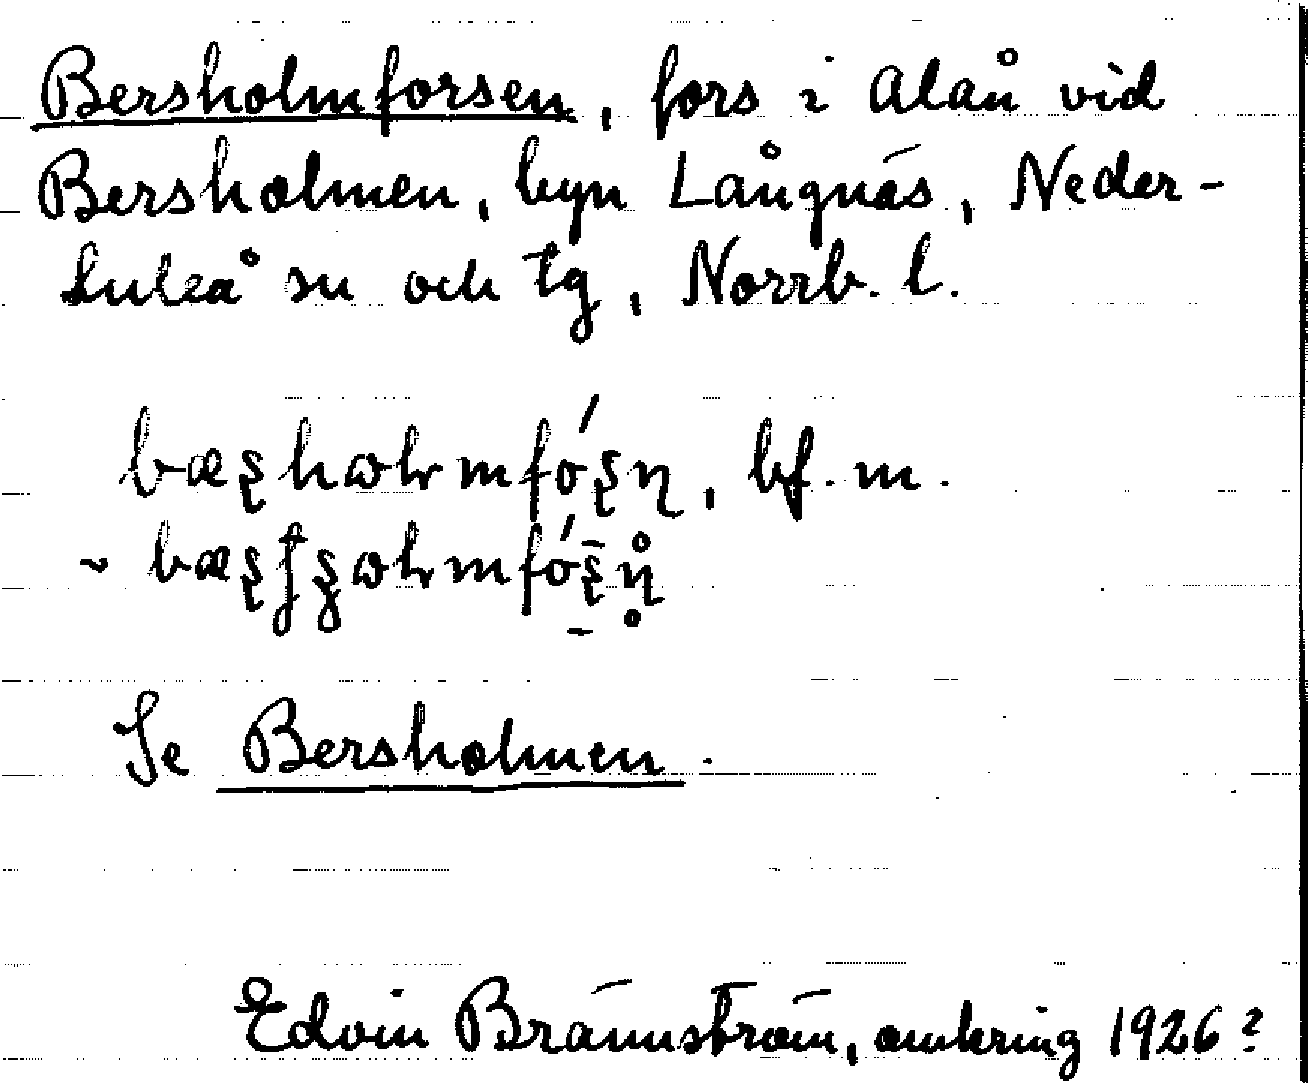 Bersholmforsen, fors i Alån vid
Bersholmen, byn Långnäs, Neder-
Luleå sn och tg, Norrb. l.
bf. m.
Se Bersholmen.
Edvin Brännström, omkring 1926?